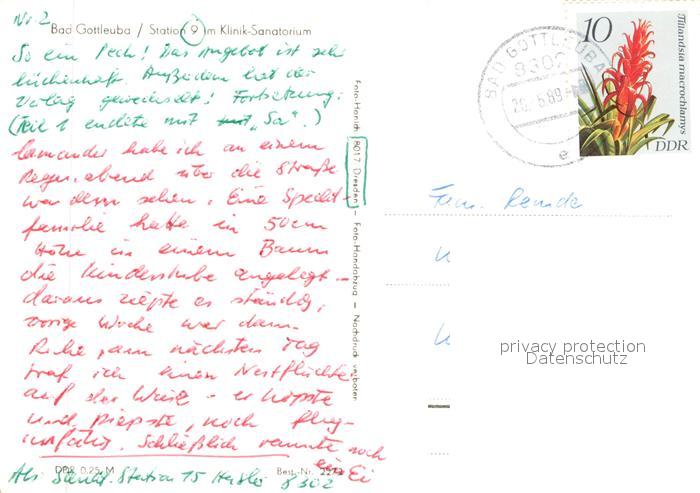 Nr. 2
Bad Gottleuba / Station 9 im Klinik-Sanatorium
So ein Pech! Das Angebot ist sehr
lückenhaft. Außerdem hat der
Verlag gewechselt! Fortsetzung:
(Teil 1 endete mit „Sa“.)
lamander habe ich an einem
Regenabend über die Straße
wandern sehen. Eine Specht-
familie hatte in 50 cm
Höhe in einem Baum
die Kinderstube angelegt -
daraus piepte es ständig,
vorige Woche war dann
Ruhe, am nächsten Tag
traf ich einen Nestflüchter
auf der Wiese - er hopste
und piepste, noch flug-
unfähig. Schließlich rannte noch
ein Ei
DDR 0,25 M
Best.-Nr.
Abs. Station 15
8302
Foto-Hanich 8017 Dresden — Foto-Handabzug — Nachdruck verboten
BAD GOTTLEUBA
8302
e
10
Tillandsia macrochlamys
DDR
Fam.
privacy protection
Datenschutz